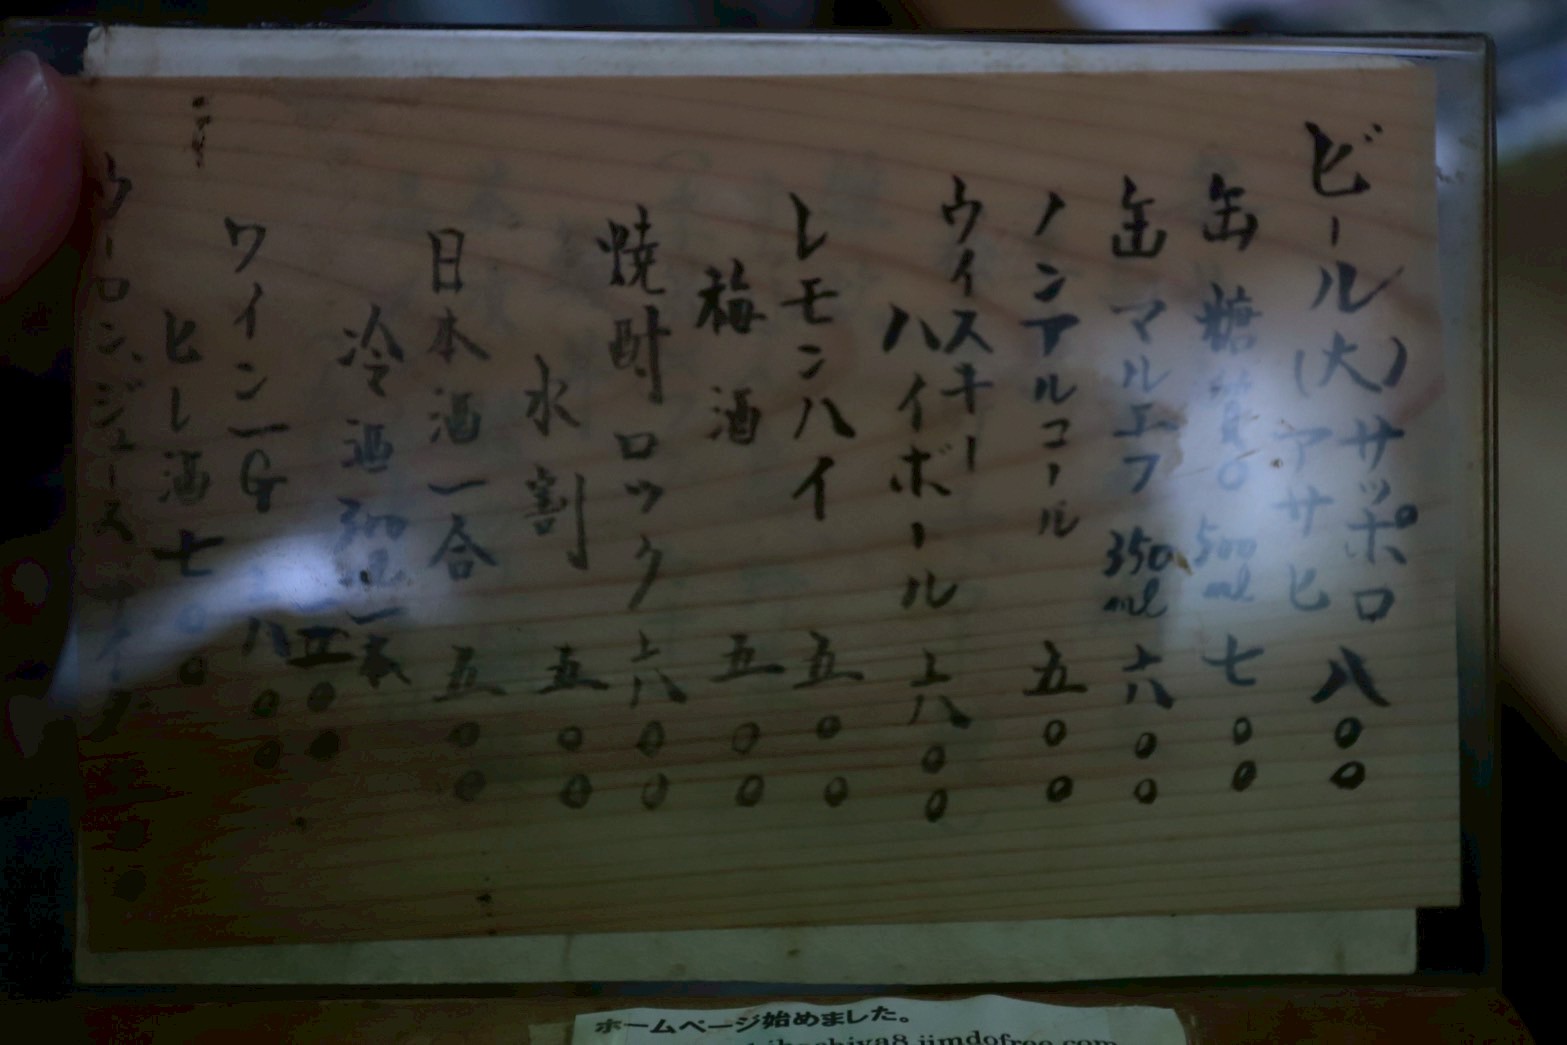 ビール(大)サッポロ
(アサヒ 八〇〇
缶 糖質0 500ml 七〇〇
缶 マルエフ 350ml 六〇〇
ノンアルコール 五〇〇
ウイスキー
ハイボール 八〇〇
レモンハイ 五〇〇
梅酒 五〇〇
焼酎ロック 六〇〇
水割 五〇〇
日本酒一合 五〇〇
冷酒 300ml 一本
〇〇
ワイン一G 八〇〇
ヒレ酒 七〇〇
ウーロン、ジュース
ホームページ始めました。
jimdofree.com